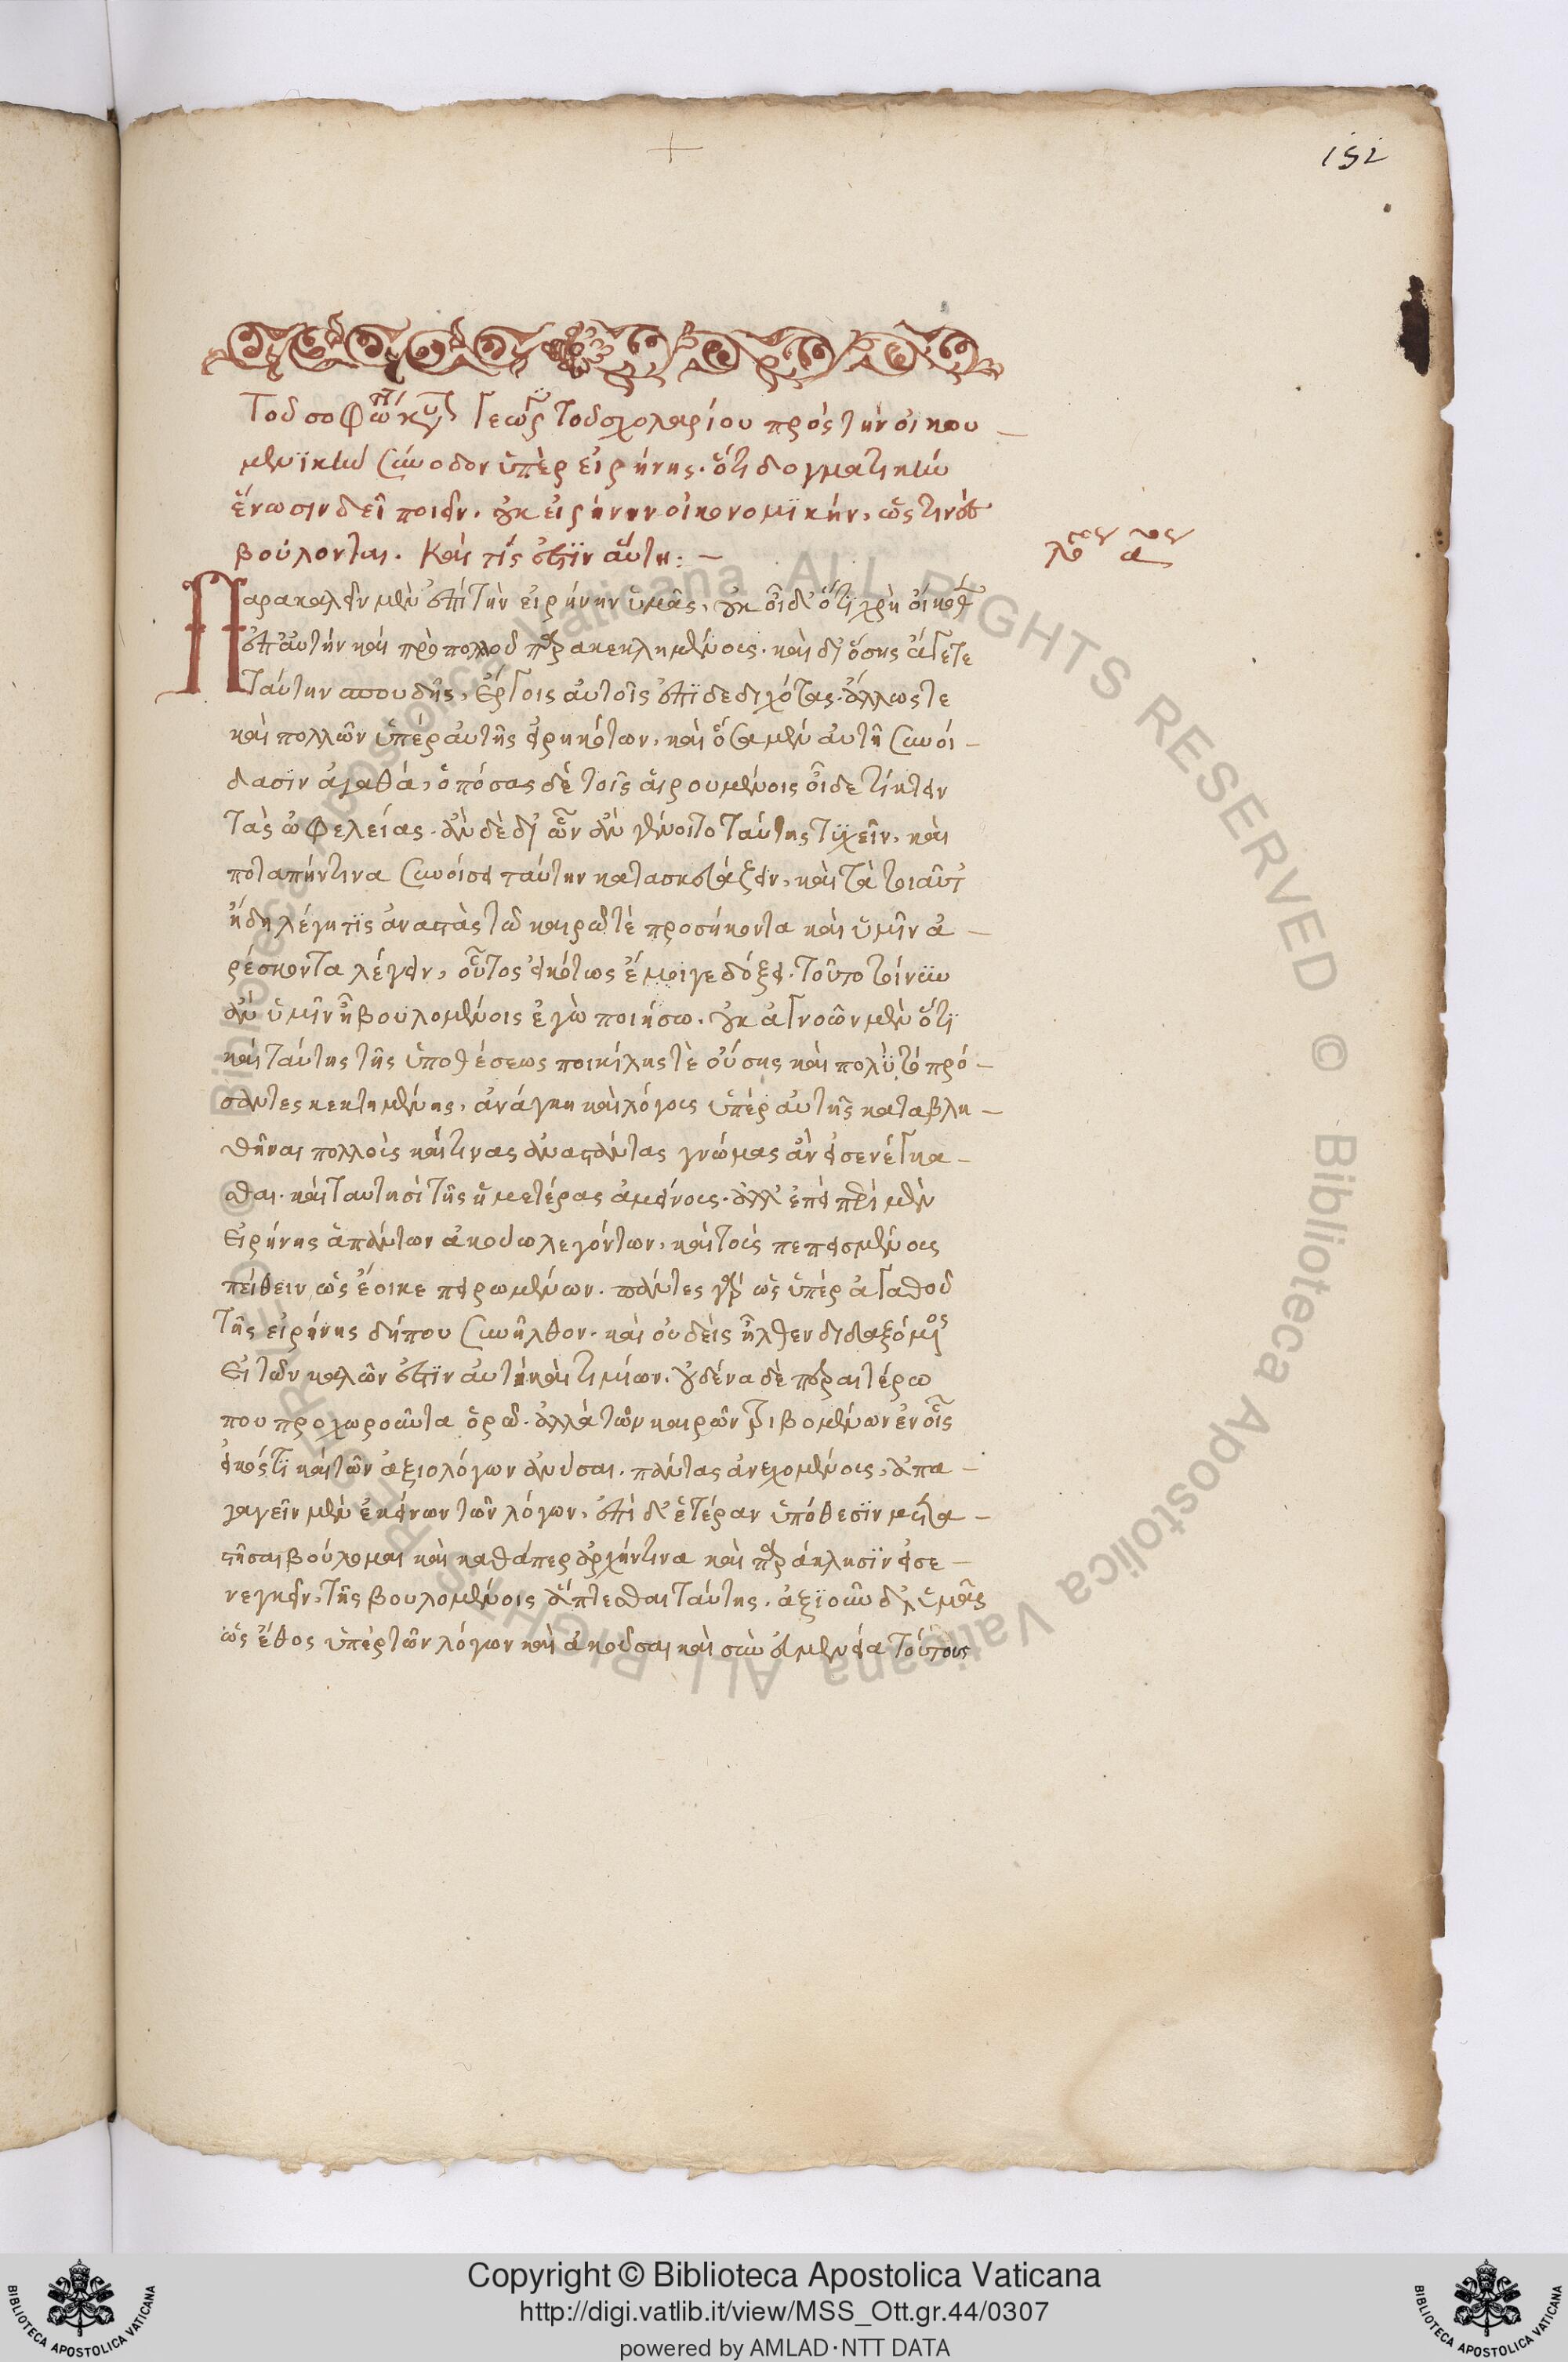 152
Τοῦ σοφω κυ Γεωρ τοῦ σχολαρίου πρὸς τὴν οἰκου –
μενϊκὴν σύνοδον ὑπὲρ εἰρήνης. ὅτι δογματικὴν
ἕνωσιν δεῖ ποιεῖν. οὐκ εἰρήνην οἰκονομϊκήν, ὥς τινες
βούλονται. Καὶ τίς ἐστϊν αὕτη: –
λό α
Παρακαλεῖν μὲν ἐπὶ τὴν εἰρήνην ὑμᾶς, οὐκ οἶδ' ὅτϊ χρὴ οἴκοθεν
ἐπ' αὐτὴν καὶ πρὸ πολλοῦ παρακεκλημένοις. καὶ δι' ὅσης ἄγετε
ταύτην σπουδῆς, ἔργοις αὐτοῖς ἐπϊδεδειχότας. ἄλλως τε
καὶ πολλῶν ὑπὲρ αὐτῆς εἰρηκότων, καὶ ὅσα μὲν αὐτῆ συνοί –
δασϊν ἀγαθά, ὁπόσας δὲ τοῖς αἱρουμένοις οἶδε τίκτειν
τὰς ὠφελείας. ἂν δὲ δι' ὧν ἂν γένοιτο ταύτης τϋχεῖν, καὶ
ποταπήν τινα συνοίσει ταύτην κατασκευάζειν, καὶ τὰ τοιαῦτ'
ἤδη λέγη τϊς ἀναστὰς τῶ καιρῶ τὲ προσήκοντα καὶ ὑμῖν ἀ –
ρέσκοντα λέγειν, οὗτος εἰκότως ἔμοιγε δόξει. τοῦτο τοίνϋν
ἂν ὑμῖν ἦ βουλομένοις ἐγὼ ποιήσω. οὐκ ἀγνοῶν μὲν ὅτϊ
καὶ ταύτης τῆς ὑποθέσεως ποικίλης τὲ οὔσης καὶ πολὺ τὸ πρό –
σαντες κεκτημένης, ἀνάγκη καὶ λόγοις ὑπὲρ αὐτῆς καταβλη –
θῆναι πολλοὶς καί τινας ἀναστάντας γνώμας ἂν εἰσενέγκα –
σθαι. καὶ ταυτησὶ τῆς ἡμετέρας ἀμείνοις. ἀλλ' ἐπεὶ περὶ μὲν
εἰρήνης ἁπάντων ἀκούω λεγόντων, καὶ τοὶς πεπεισμένοις
πείθειν ὡς ἔοικε πειρωμένων. πάντες γὰρ ὡς ὑπὲρ ἀγαθοῦ
τῆς εἰρήνης δήπου συνῆλθον. καὶ οὐδεὶς ἦλθεν διδαξόμενος
εἰ τῶν καλῶν ἐστϊν αὐτὴ καὶ τιμίων. οὐδένα δὲ περαιτέρω
που προχωροῦντα ὁρῶ. ἀλλὰ τῶν καιρῶν τριβομένων ἐν οἷς
εἰκός τϊ καὶ τῶν ἀξιολόγων ἀνύσαι. πάντας ἀνεχομένοις, ἀπα –
γαγεῖν μὲν ἐκείνων τῶν λόγων, ἐπὶ δ' ἑτέραν ὑπόθεσϊν μετα –
στῆσαι βούλομαι καὶ καθάπερ ἀρχήν τινα καὶ παράκλησϊν εἰσε –
νεγκεῖν, τῆς βουλομένοις ἅπτεσθαι ταύτης. ἀξϊοῦν δὲ ὑμᾶς
ὡς ἔθος ὑπὲρ τῶν λόγων καὶ ἀκοῦσαι καὶ σὺν εὐμενεία τούτοις
Copyright © Biblioteca Apostolica Vaticana
http://digi.vatlib.it/view/MSS_Ott.gr.44/0307
powered by AMLAD·NTT DATA
BIBLIOTECA APOSTOLICA VATICANA
BIBLIOTECA APOSTOLICA VATICANA
© Biblioteca Apostolica Vaticana ALL RIGHTS RESERVED © Biblioteca Apostolica Vaticana ALL RIGHTS RESERVED